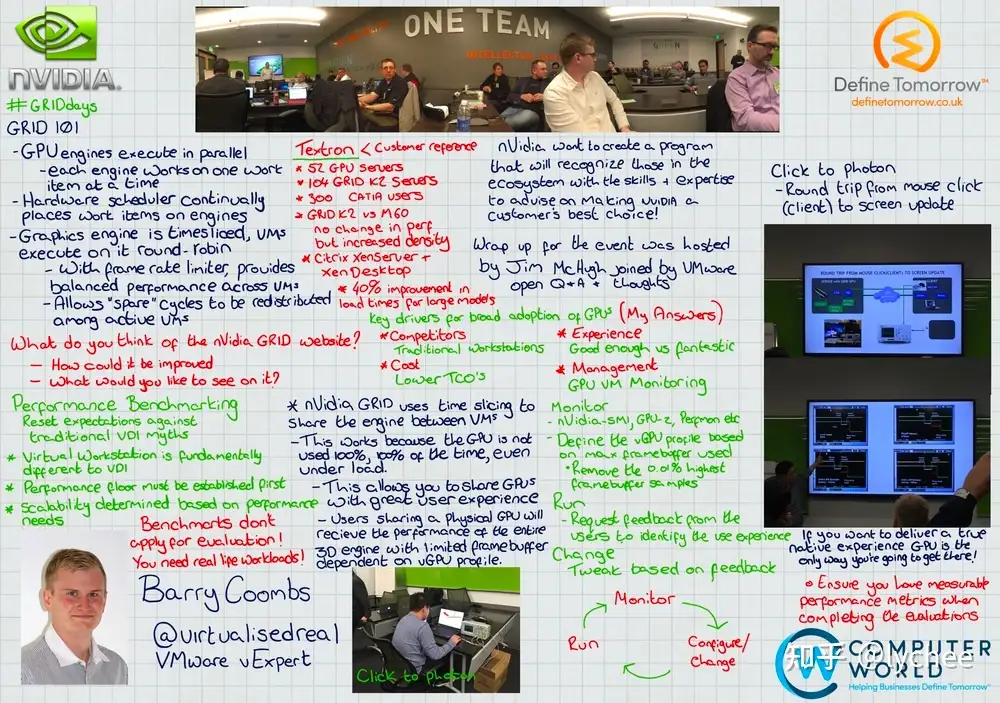 nVIDIA.
#GRIDdays
GRID 101
- GPU engines execute in parallel
- each engine works on one work
item at a time
- Hardware scheduler continually
places work items on engines
- Graphics engine is timesliced, VMs
execute on it round-robin
- With frame rate limiter, provides
balanced performance across VMs
- Allows "spare" cycles to be redistributed
among active VMs
ONE TEAM
Textron < Customer reference
* 52 GPU Servers
* 104 GRID K2 Servers
* 300 CATIA users
* GRID K2 vs M60
no change in perf
but increased density
* Citrix XenServer +
XenDesktop
* 40% improvement in
load times for large models
nVidia want to create a program
that will recognize those in the
ecosystem with the skills + expertise
to advise on making NVIDIA a
customer's best choice!
Wrap up for the event was hosted
by Jim McHugh joined by VMware
open Q+A + thoughts
Define Tomorrow™
definetomorrow.co.uk
Click to photon
- Round trip from mouse click
(client) to screen update
ROUND TRIP FROM MOUSE CLICK(CLIENT) TO SCREEN UPDATE
What do you think of the nVidia GRID website?
- How could it be improved
- What would you like to see on it?
Key drivers for broad adoption of GPUs (My Answers)
* Competitors
Traditional workstations
* Cost
Lower TCO's
* Experience
Good enough vs fantastic
* Management
GPU VM Monitoring
Performance Benchmarking
Reset expectations against
traditional VDI myths
* Virtual Workstation is fundamentally
different to VDI
* Performance floor must be established first
* Scalability determined based on performance
needs
Benchmarks dont
apply for evaluation!
You need real life workloads!
* nVidia GRID uses time slicing to
share the engine between VMs
- This works because the GPU is not
used 100%, 100% of the time, even
under load.
- This allows you to share GPUs
with great user experience
- Users sharing a physical GPU will
recieve the performance of the entire
3D engine with limited framebuffer
dependent on vGPU profile.
Monitor
- nVidia-SMI, GPU-Z, Perfmon etc
- Define the vGPU profile based
on max framebuffer used
* Remove the 0.01% highest
framebuffer samples
Run
- Request feedback from the
users to identify the use experience
Change
Tweak based on feedback
Monitor
Configure/
Change
Run
If you want to deliver a true
native experience GPU is the
only way you're going to get there!
* Ensure you have measurable
performance metrics when
completing the evaluations
Barry Coombs
@virtualisedreal
VMware vExpert
Click to photon
COMPUTER
WORLD
Helping Businesses Define Tomorrow™
知乎